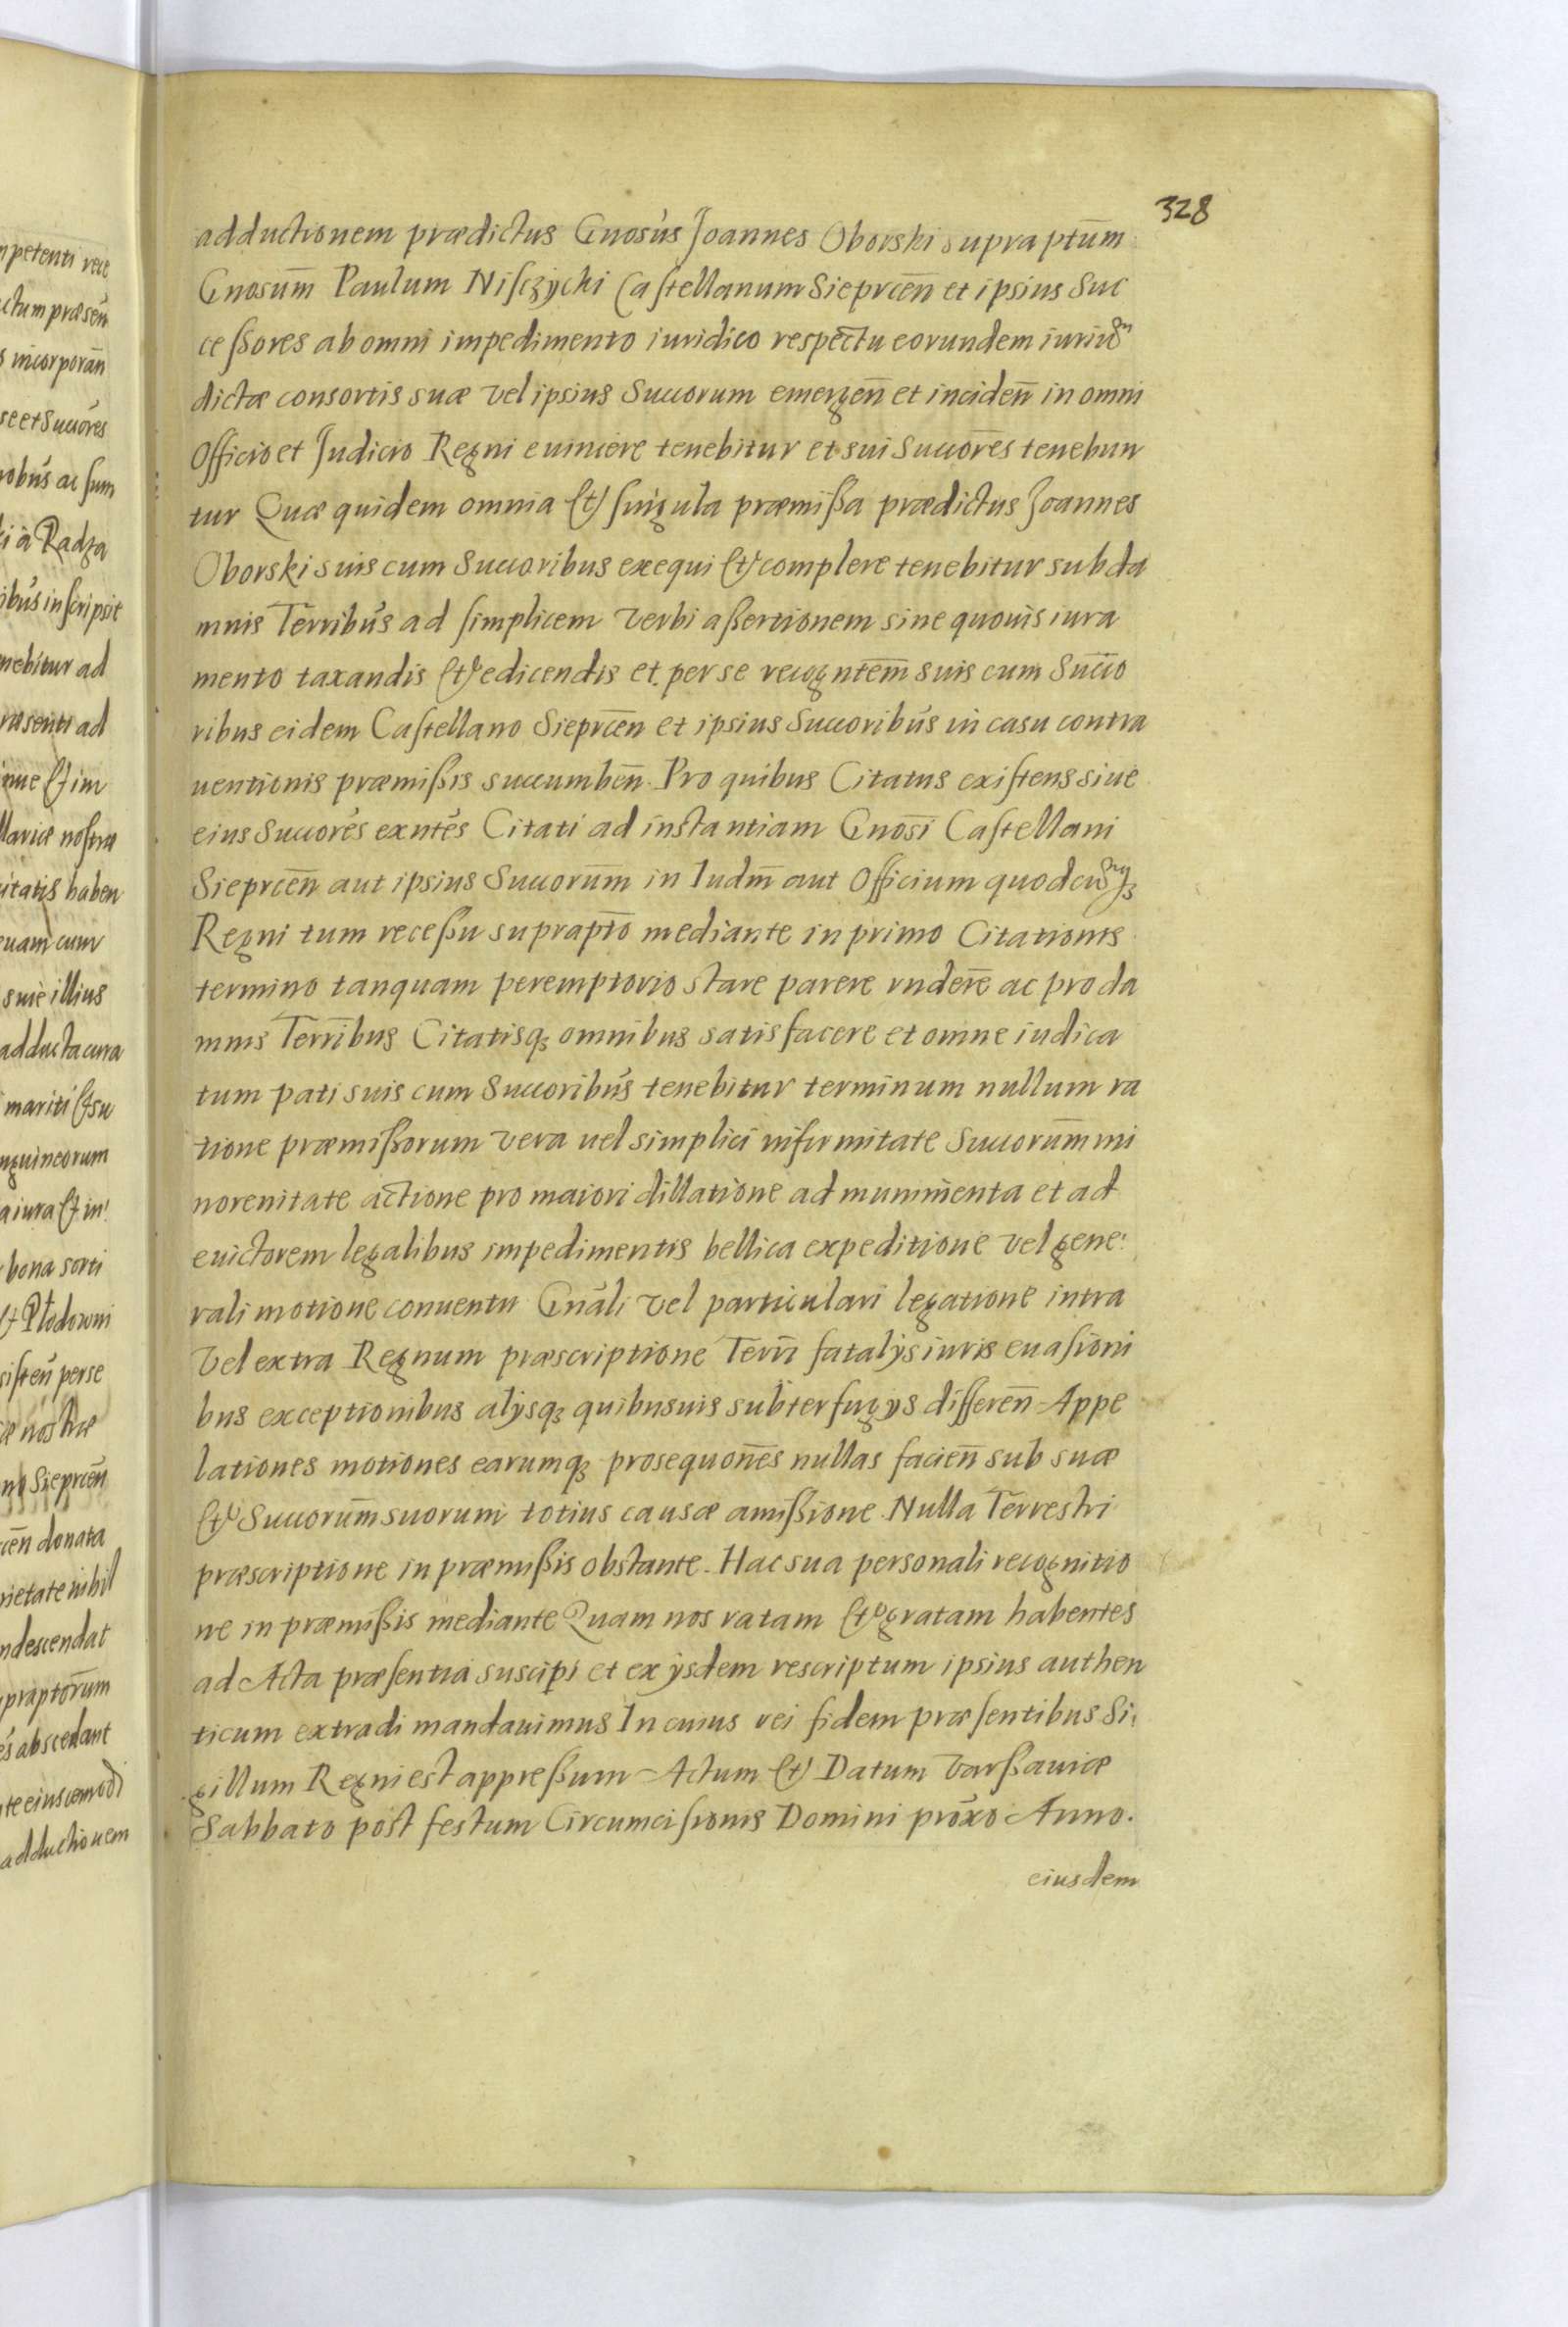 328
adductionem prædictus Gnosus Joannes Oborski supraptum
Gnosum Paulum Nisczycki Castellanum Sieprcen et ipsius Suc
cessores ab omni impedimento iuridico respectu eorundem iurium
dictæ consortis suæ vel ipsius Succorum emergen et inciden in omni
Officio et Judicio Regni evincere tenebitur et sui Succores tenebun
tur Quæ quidem omnia et singula præmissa prædictus Joannes
Oborski suis cum Succoribus exequi et complere tenebitur sub da
mnis Terribus ad simplicem verbi assertionem sine quouis iura
mento taxandis et edicendis et per se recogntem suis cum Succo
ribus eidem Castellano Sieprcen et ipsius Succoribus in casu contra
uentionis præmissis succumben. Pro quibus Citatus existens siue
eius Succores exntes Citati ad instantiam Gnosi Castellani
Sieprcen aut ipsius Succorum in Iudm aut Officium quodcumq
Regni tum recessu suprapto mediante in primo Citationis
termino tanquam peremptorio stare parere rndere ac pro da
mnis Terribus Citatisq omnibus satisfacere et omne iudica
tum pati suis cum Succoribus tenebitur terminum nullum ra
tione præmissorum vera uel simplici infirmitate Succorum mi
norenitate actione pro maiori dillatione ad munimenta et ad
euictorem legalibus impedimentis bellica expeditione vel gene
rali motione conuentu Gnali vel particulari legatione intra
vel extra Regnum præscriptione Terri fatalys iuris euasioni
bus exceptionibus alysq quibusuis subterfugys differen Appe
lationes motiones earumq prosequones nullas facien sub suæ
et Succorum suorum totius causæ amissione. Nulla Terrestri
præscriptione in præmissis obstante. Hac sua personali recognitio
ne in præmissis mediante Quam nos ratam et gratam habentes
ad Acta præsentia suscipi et ex ysdem rescriptum ipsius authen
ticum extradi mandauimus In cuius rei fidem præsentibus Si
gillum Regni est appressum Actum et Datum Varssauiæ
Sabbato post festum Circumcisionis Domini proxo Anno.
eiusdem